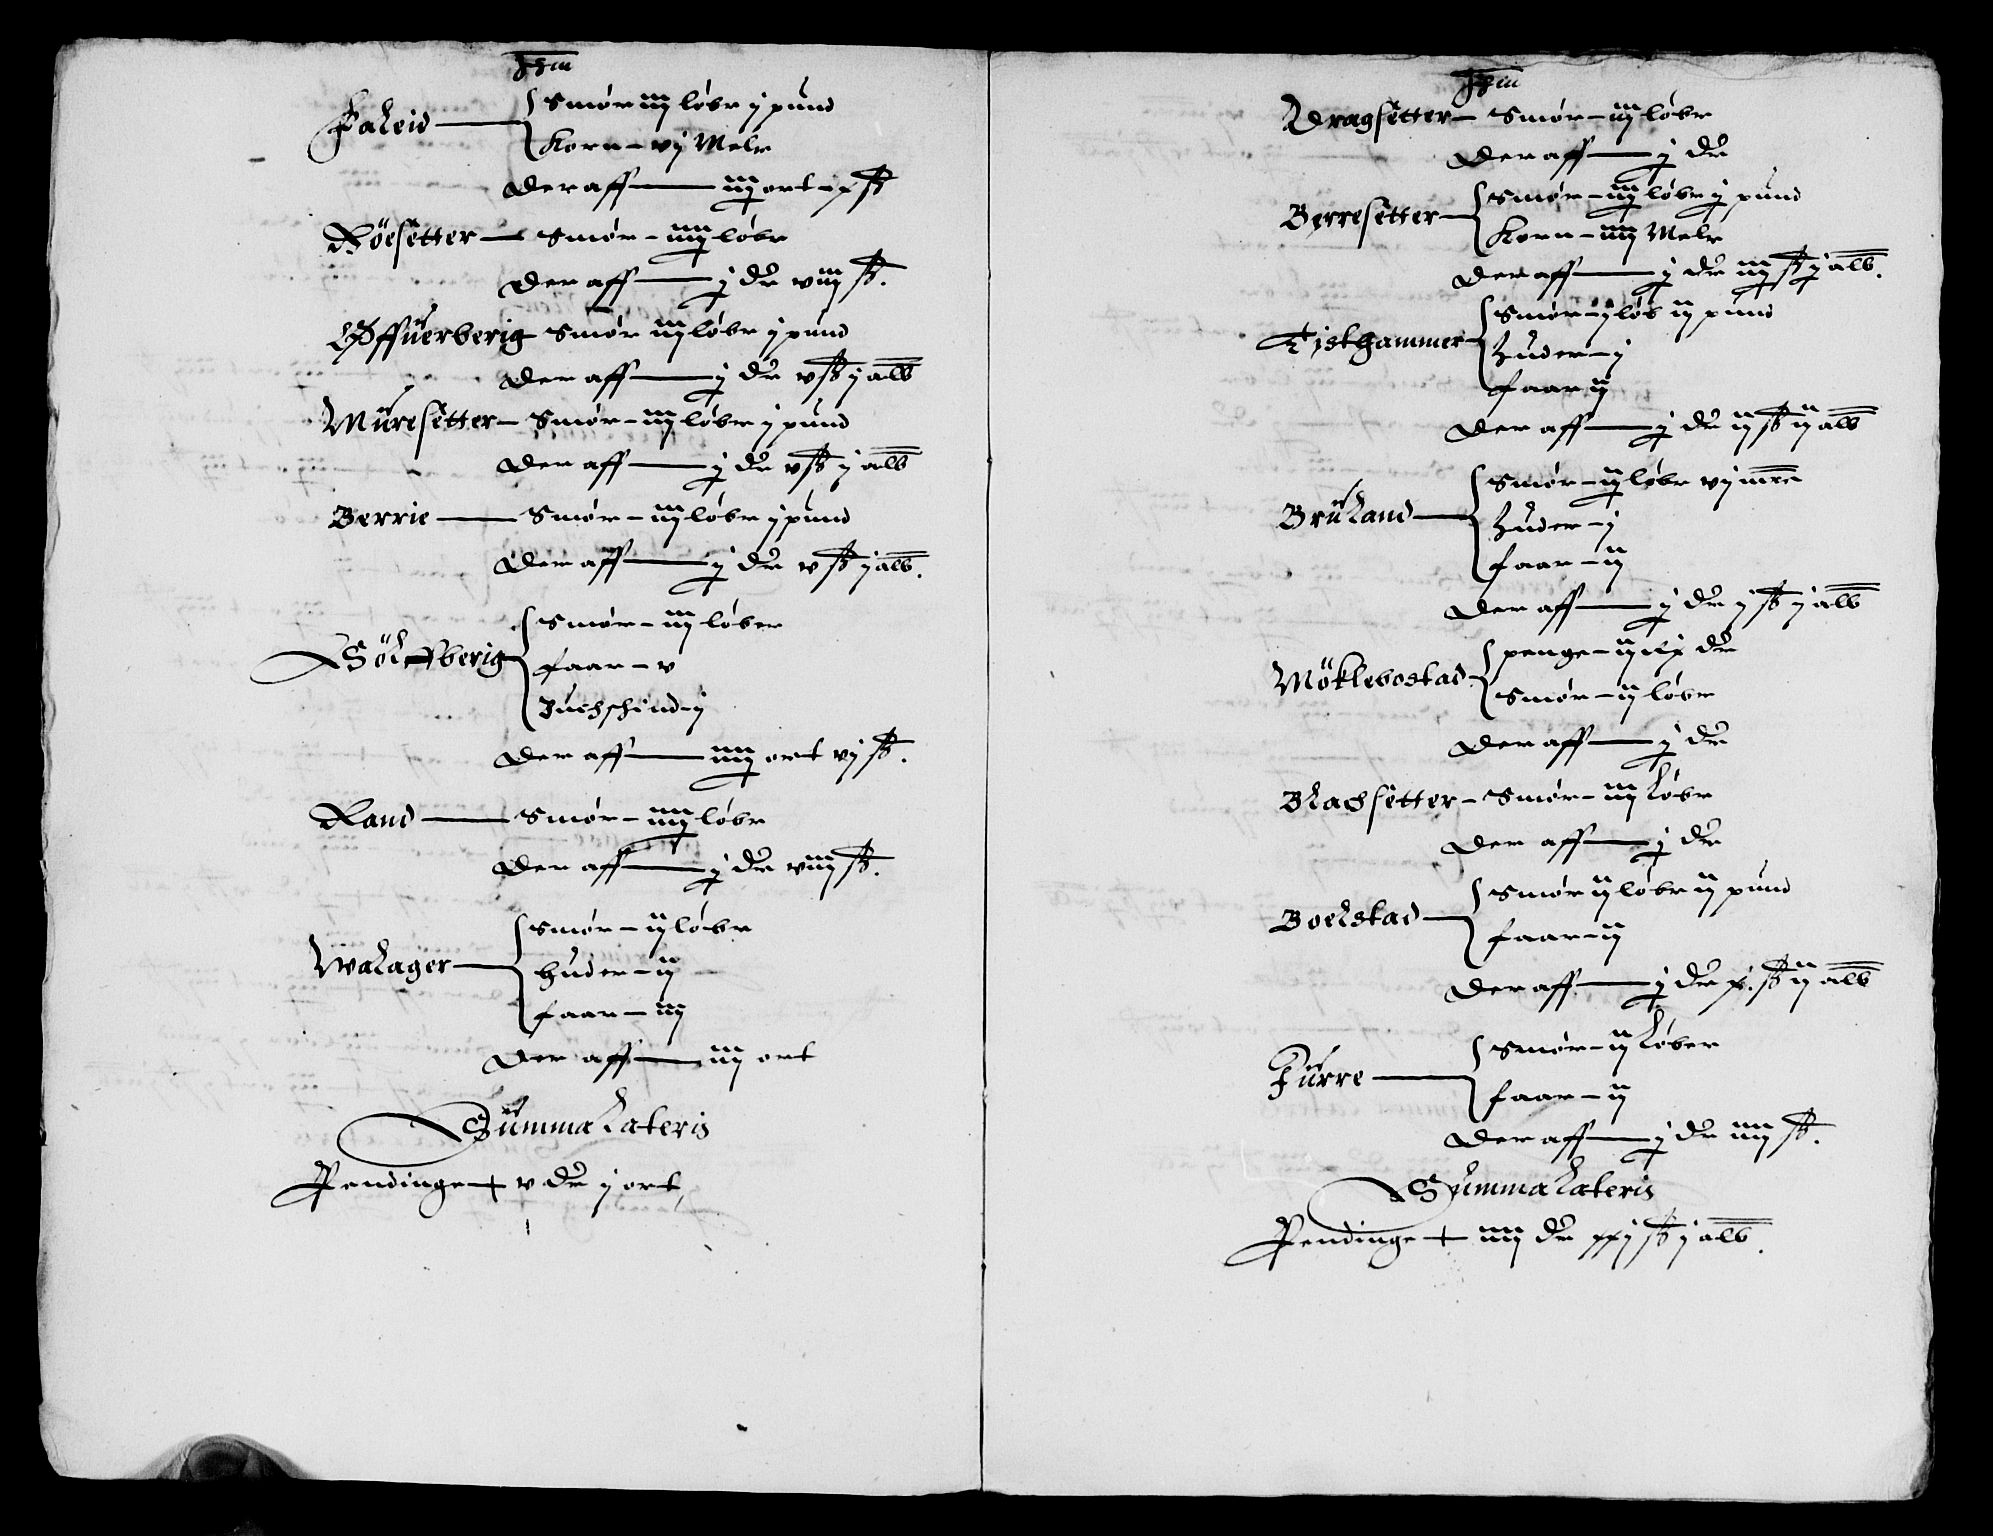 Item
Faleid — Smør iiij løbr j pund
Korn – vj Melr
Der aff — iiij ort ix ß
Röesetter — Smør – iiiij løbr
Der aff — j dr viiij ß.
Øffüerberig Smør iiij løbr j pund
Der aff — j dr v ß j alb
Müresetter – Smør – iiij løbr j pund
Der aff — j dr v ß j alb
Berrie — Smør – iiij løbr j pund
Der aff — j dr v ß j alb.
Sölffberig Smør – iiij løber
faar – v
Buchschind – j
Der aff — iiiij ort vj ß.
Rand — Smør – iiiij løbr
Der aff — j dr viiij ß.
Walager — Smør – iij løbr
huder – ij
faar – iiij
Der aff — iiij ort
Summa Lateris
Pendinge + v dr j ort
Item
Dragsetter – Smør – iiij løbr
Der aff — j dr
Berresetter – Smør – iiij løbr j pund
Korn – iiij Melr
Der aff — j dr iiij ß j alb.
Tisthammer Smør – ij løb ij pund
huder – j
faar ij
Der aff — j dr iij ß ij alb
Brüland — Smør – iij løbr vj mrc
huder – j
faar – ij
Der aff — j dr j ß j alb
Möklebostad – penge – dr
Smør – ij løbr
Der aff — j dr
Blachsetter – Smør – iiij løbr
Der aff — j dr
Boelstad — Smør ij løbr ij pund
faar – ij
Der aff — j dr x. ß ij alb
Furre — Smør – iij løber
faar – ij
Der aff — j dr iiiij ß.
Summa Lateris
Pendinge + iiiij dr xxj ß j alb.